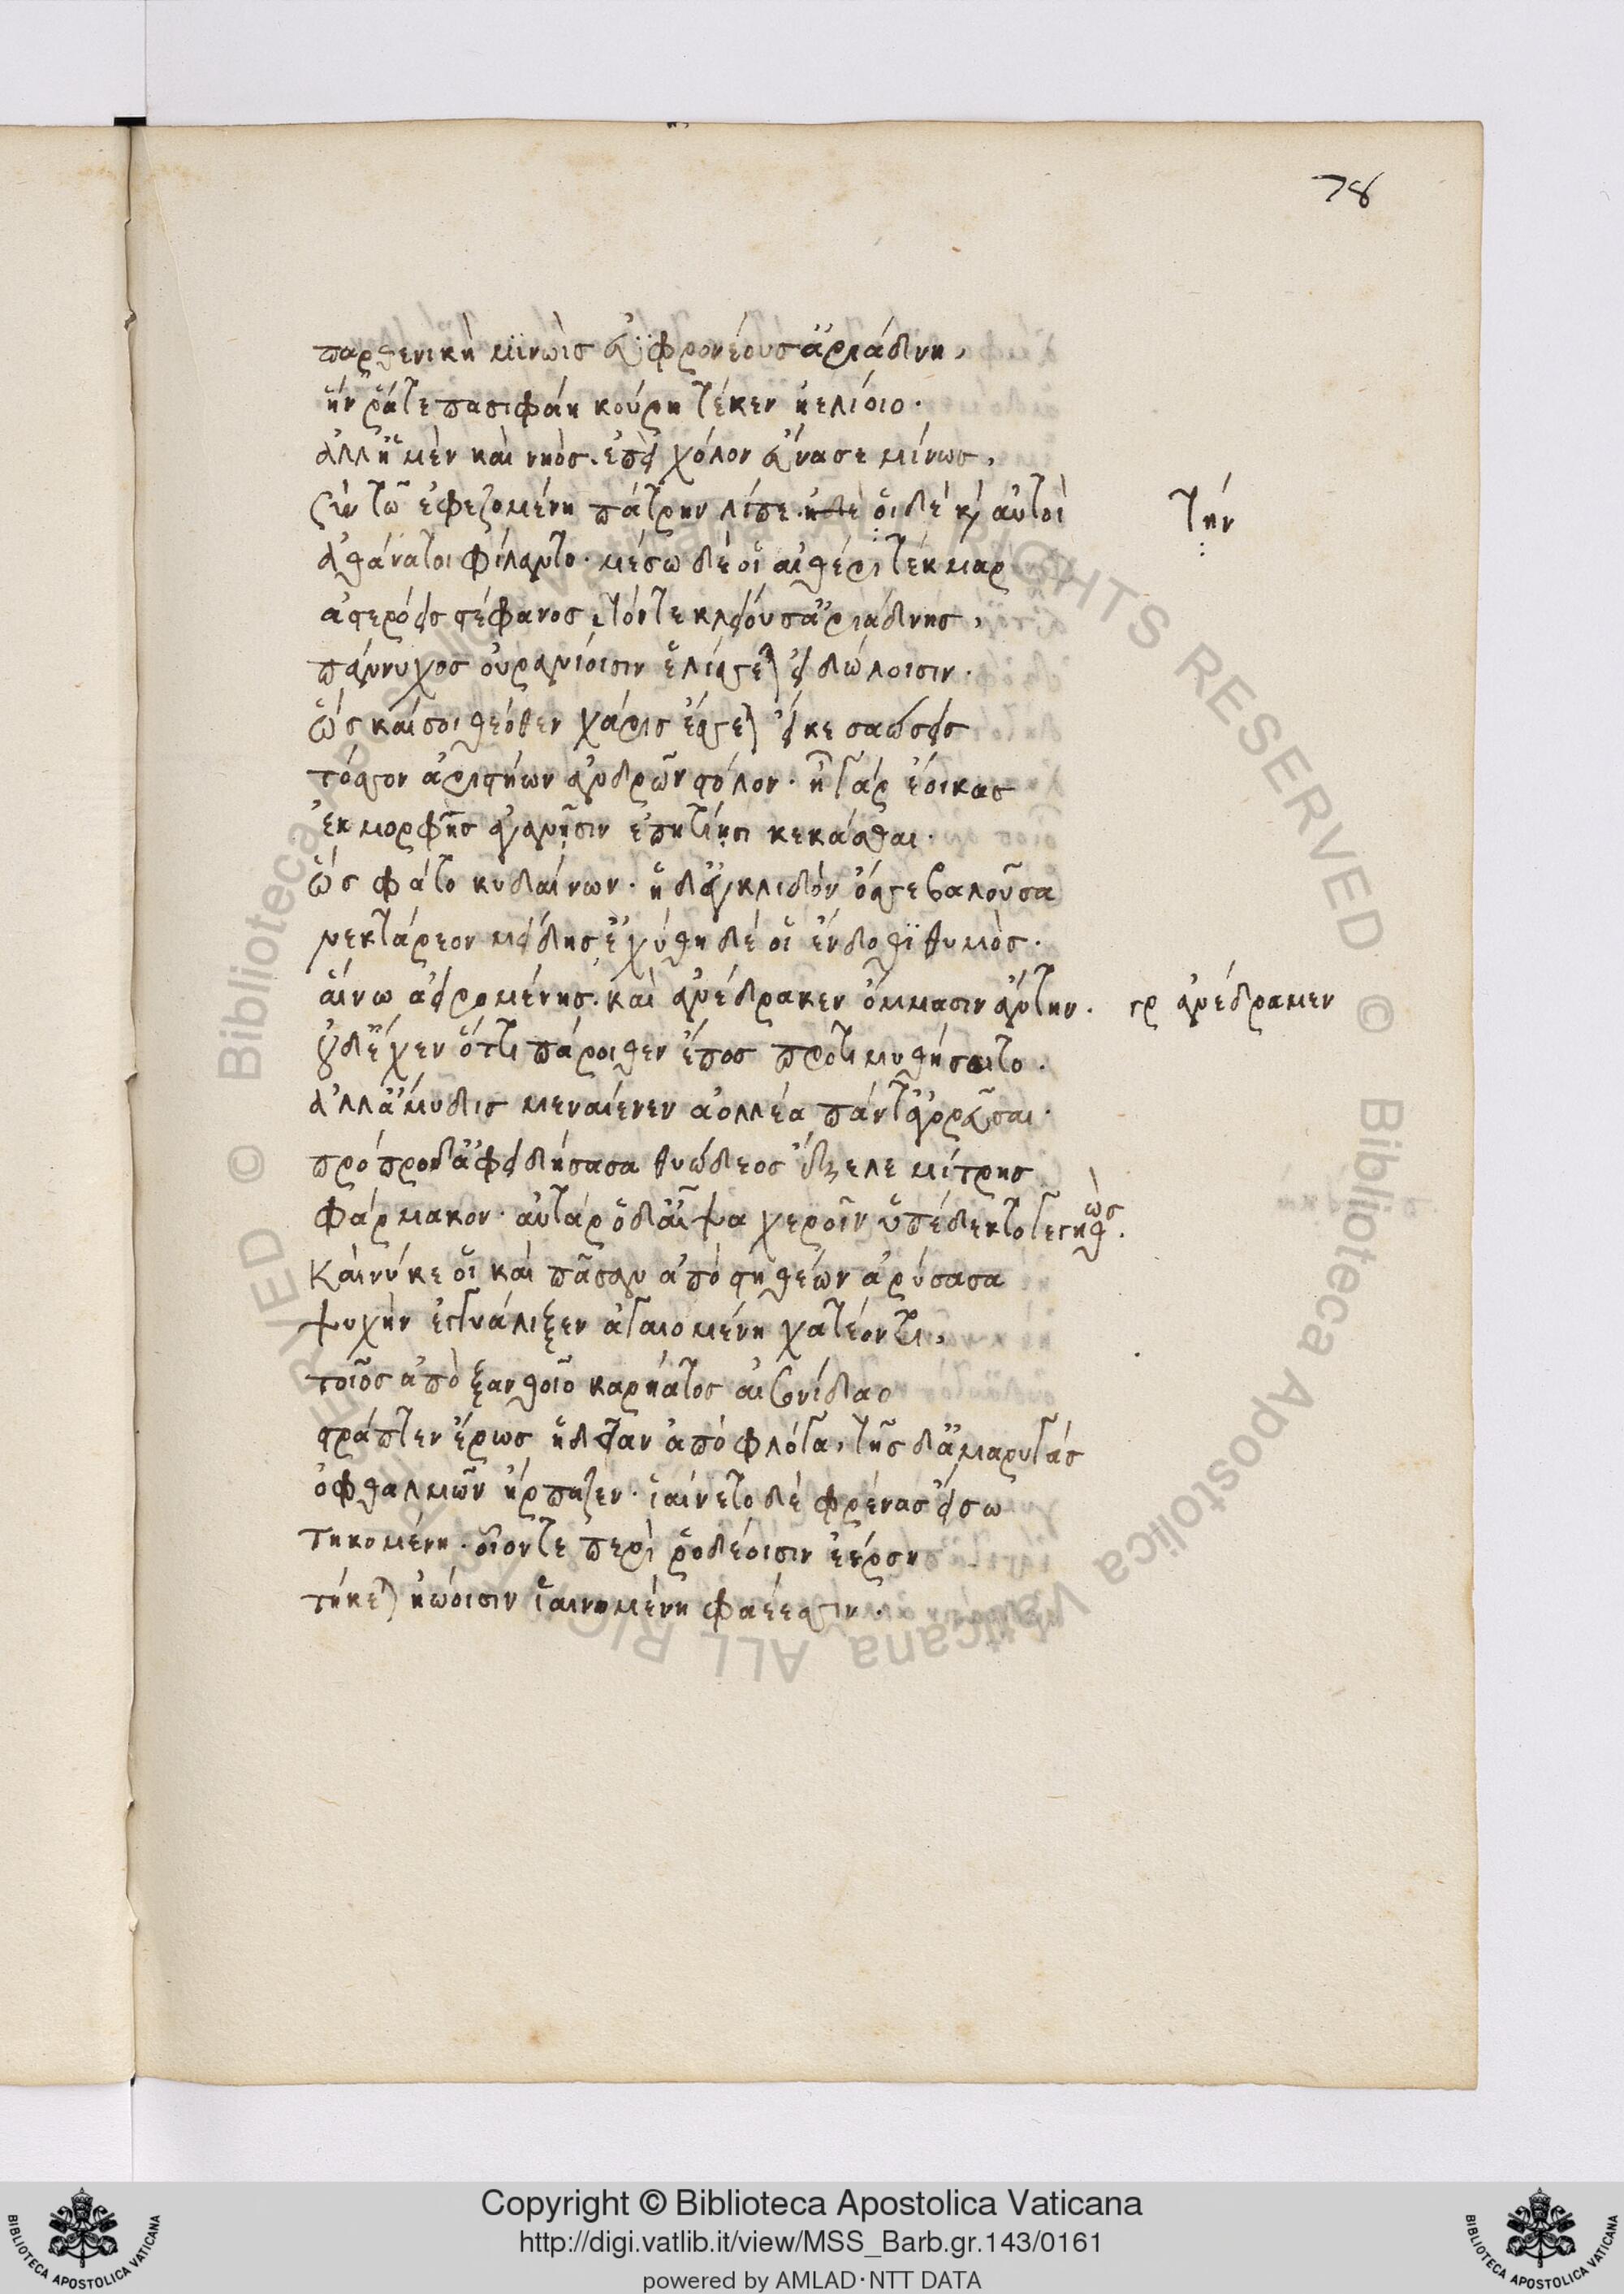 78
παρθενικὴ μϊνωῒς ἐϋφρονέουσ' ἀριάδνη,
ἥν ῥάτε πασιφάη κούρη τέκεν ἠελίοιο.
ἀλλ' ἡ μὲν καὶ νηὸς. ἐπεὶ χόλον εὔνασε μίνως,
σὺν τῶ ἐφεζομένη πάτρην λίπε. τὴν δὲ καὶ αὐτοὶ
ἀθάνατοι φίλαντο. μέσω δέ οἱ αἰθέρι τέκμαρ
ἀστερόεις στέφανος, τόντε κλείουσ' ἀριάδνης,
πάννυχος οὐρανίοισιν ἑλίσσεται εἰδώλοισιν.
ὣς καί σοι θεόθεν χάρις ἔσσεται εἴκε σαώσεις
τόσσον ἀριστήων ἀνδρῶν στόλον. ἦ γὰρ ἔοικας
ἐκ μορφῆς ἀγανῇσιν ἐπητίῃσι κεκάσθαι.
ὣς φάτο κυδαίνων. ἡ δ' ἐγκλιδὸν ὄσσε βαλοῦσα
νεκτάρεον μείδησ' ἐχύθη δέ οἱ ἔνδοθϊ θυμὸς.
αἴνω ἀειρομένης. καὶ ἀνέδρακεν ὄμμασιν ἄντην. γρ ἀνέδραμεν
οὐδ' ἔχεν ὅττι πάροιθεν ἔπος προτιμυθήσαιτο.
ἀλλ' ἄμυδις μενέαινεν ἀολλέα πάντ' ἀγορεῦσαι.
πρόπροδ' ἀφειδήσασα θυώδεος ἔξελε μίτρης
φάρμακον. αὐτὰρ ὅδ' αἶψα χεροῖν ὑπέδεκτο γεγηθὼς.
Καὶνύκε οἱ καὶ πᾶσαν ἀπὸ στηθέων ἀρύσασα
ψυχὴν ἐγγυάλιξεν ἀγαιομένη χατέοντι,
τοῖος ἀπὸ ξανθοῖο καρήατος αἰσονίδαο
στράπτεν ἔρως ἡδεῖαν ἀπὸ φλόγα, τῆς δ' ἀμαρυγάς
ὀφθαλμῶν ἥρπαζεν. ἰαίνετο δὲ φρένας εἴσω
τηκομένη. οἷόντε περὶ ῥοδέοισιν ἐέρση
τήκεται ἠώοισιν ἰαινομένη φαέεσσιν.
Copyright © Biblioteca Apostolica Vaticana
http://digi.vatlib.it/view/MSS_Barb.gr.143/0161
powered by AMLAD·NTT DATA